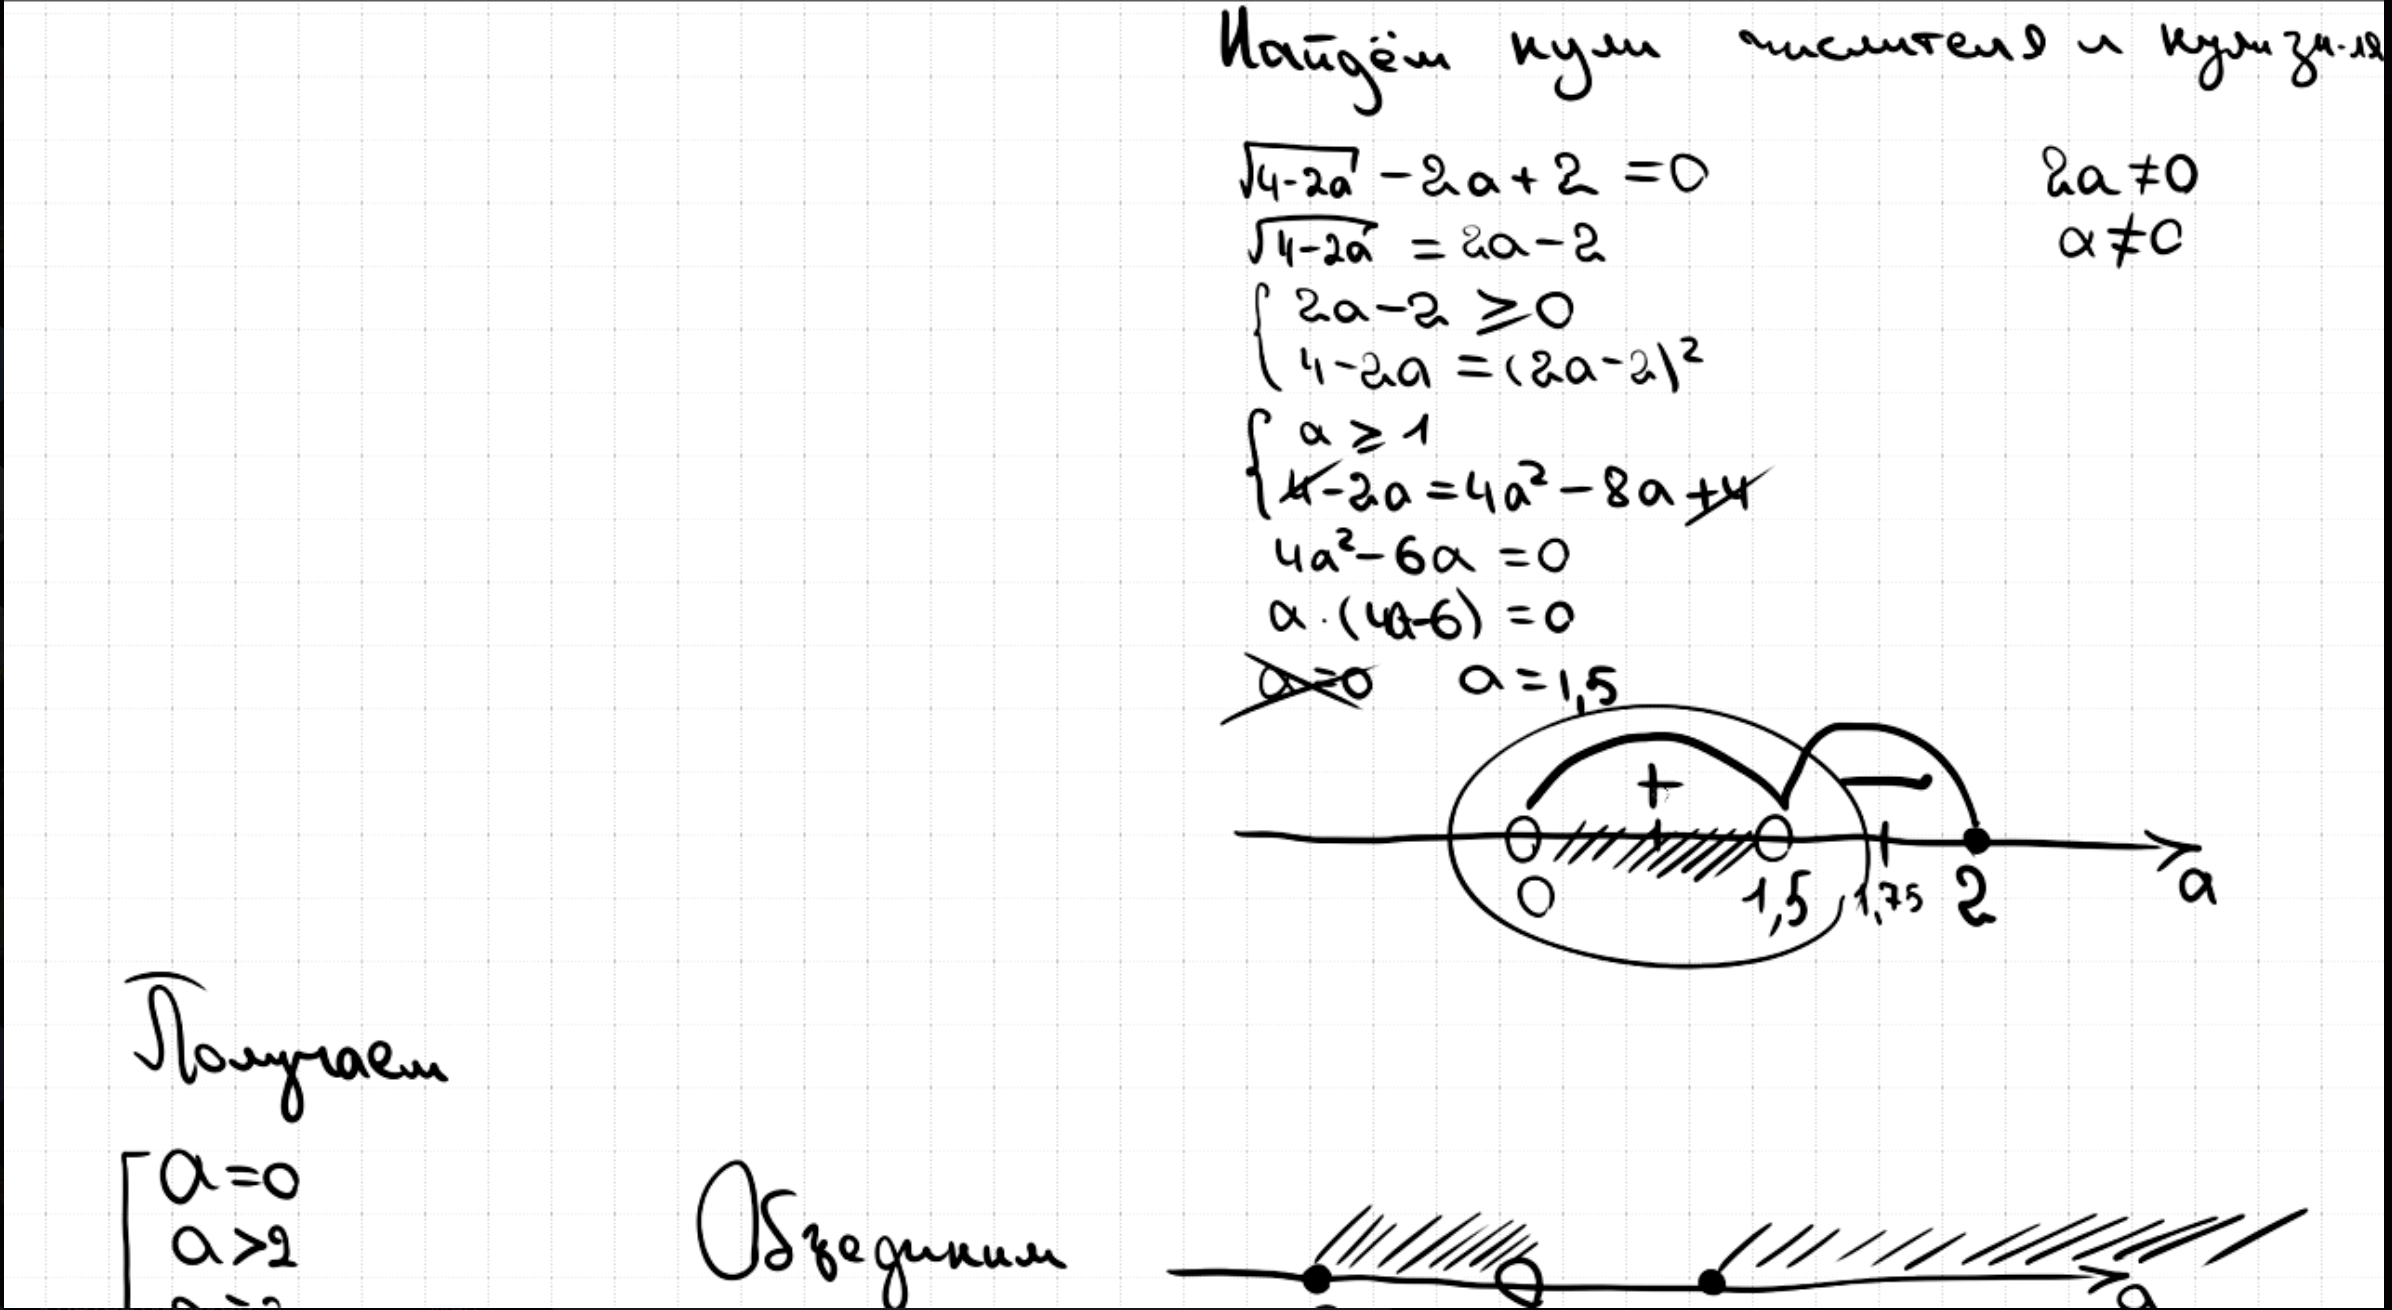 Найдём нули числителя и нули зн-ля
√(4-2a) - 2a + 2 = 0
2a ≠ 0
√(4-2a) = 2a - 2
a ≠ 0
{ 2a - 2 ≥ 0
4 - 2a = (2a - 2)²
{ a ≥ 1
4 - 2a = 4a² - 8a + 4
4a² - 6a = 0
a · (4a - 6) = 0
a = 0 a = 1,5
+ −
0 1,5 1,75 2 a
Получаем
[ a = 0
a > 2
a = 2
Объединим
a